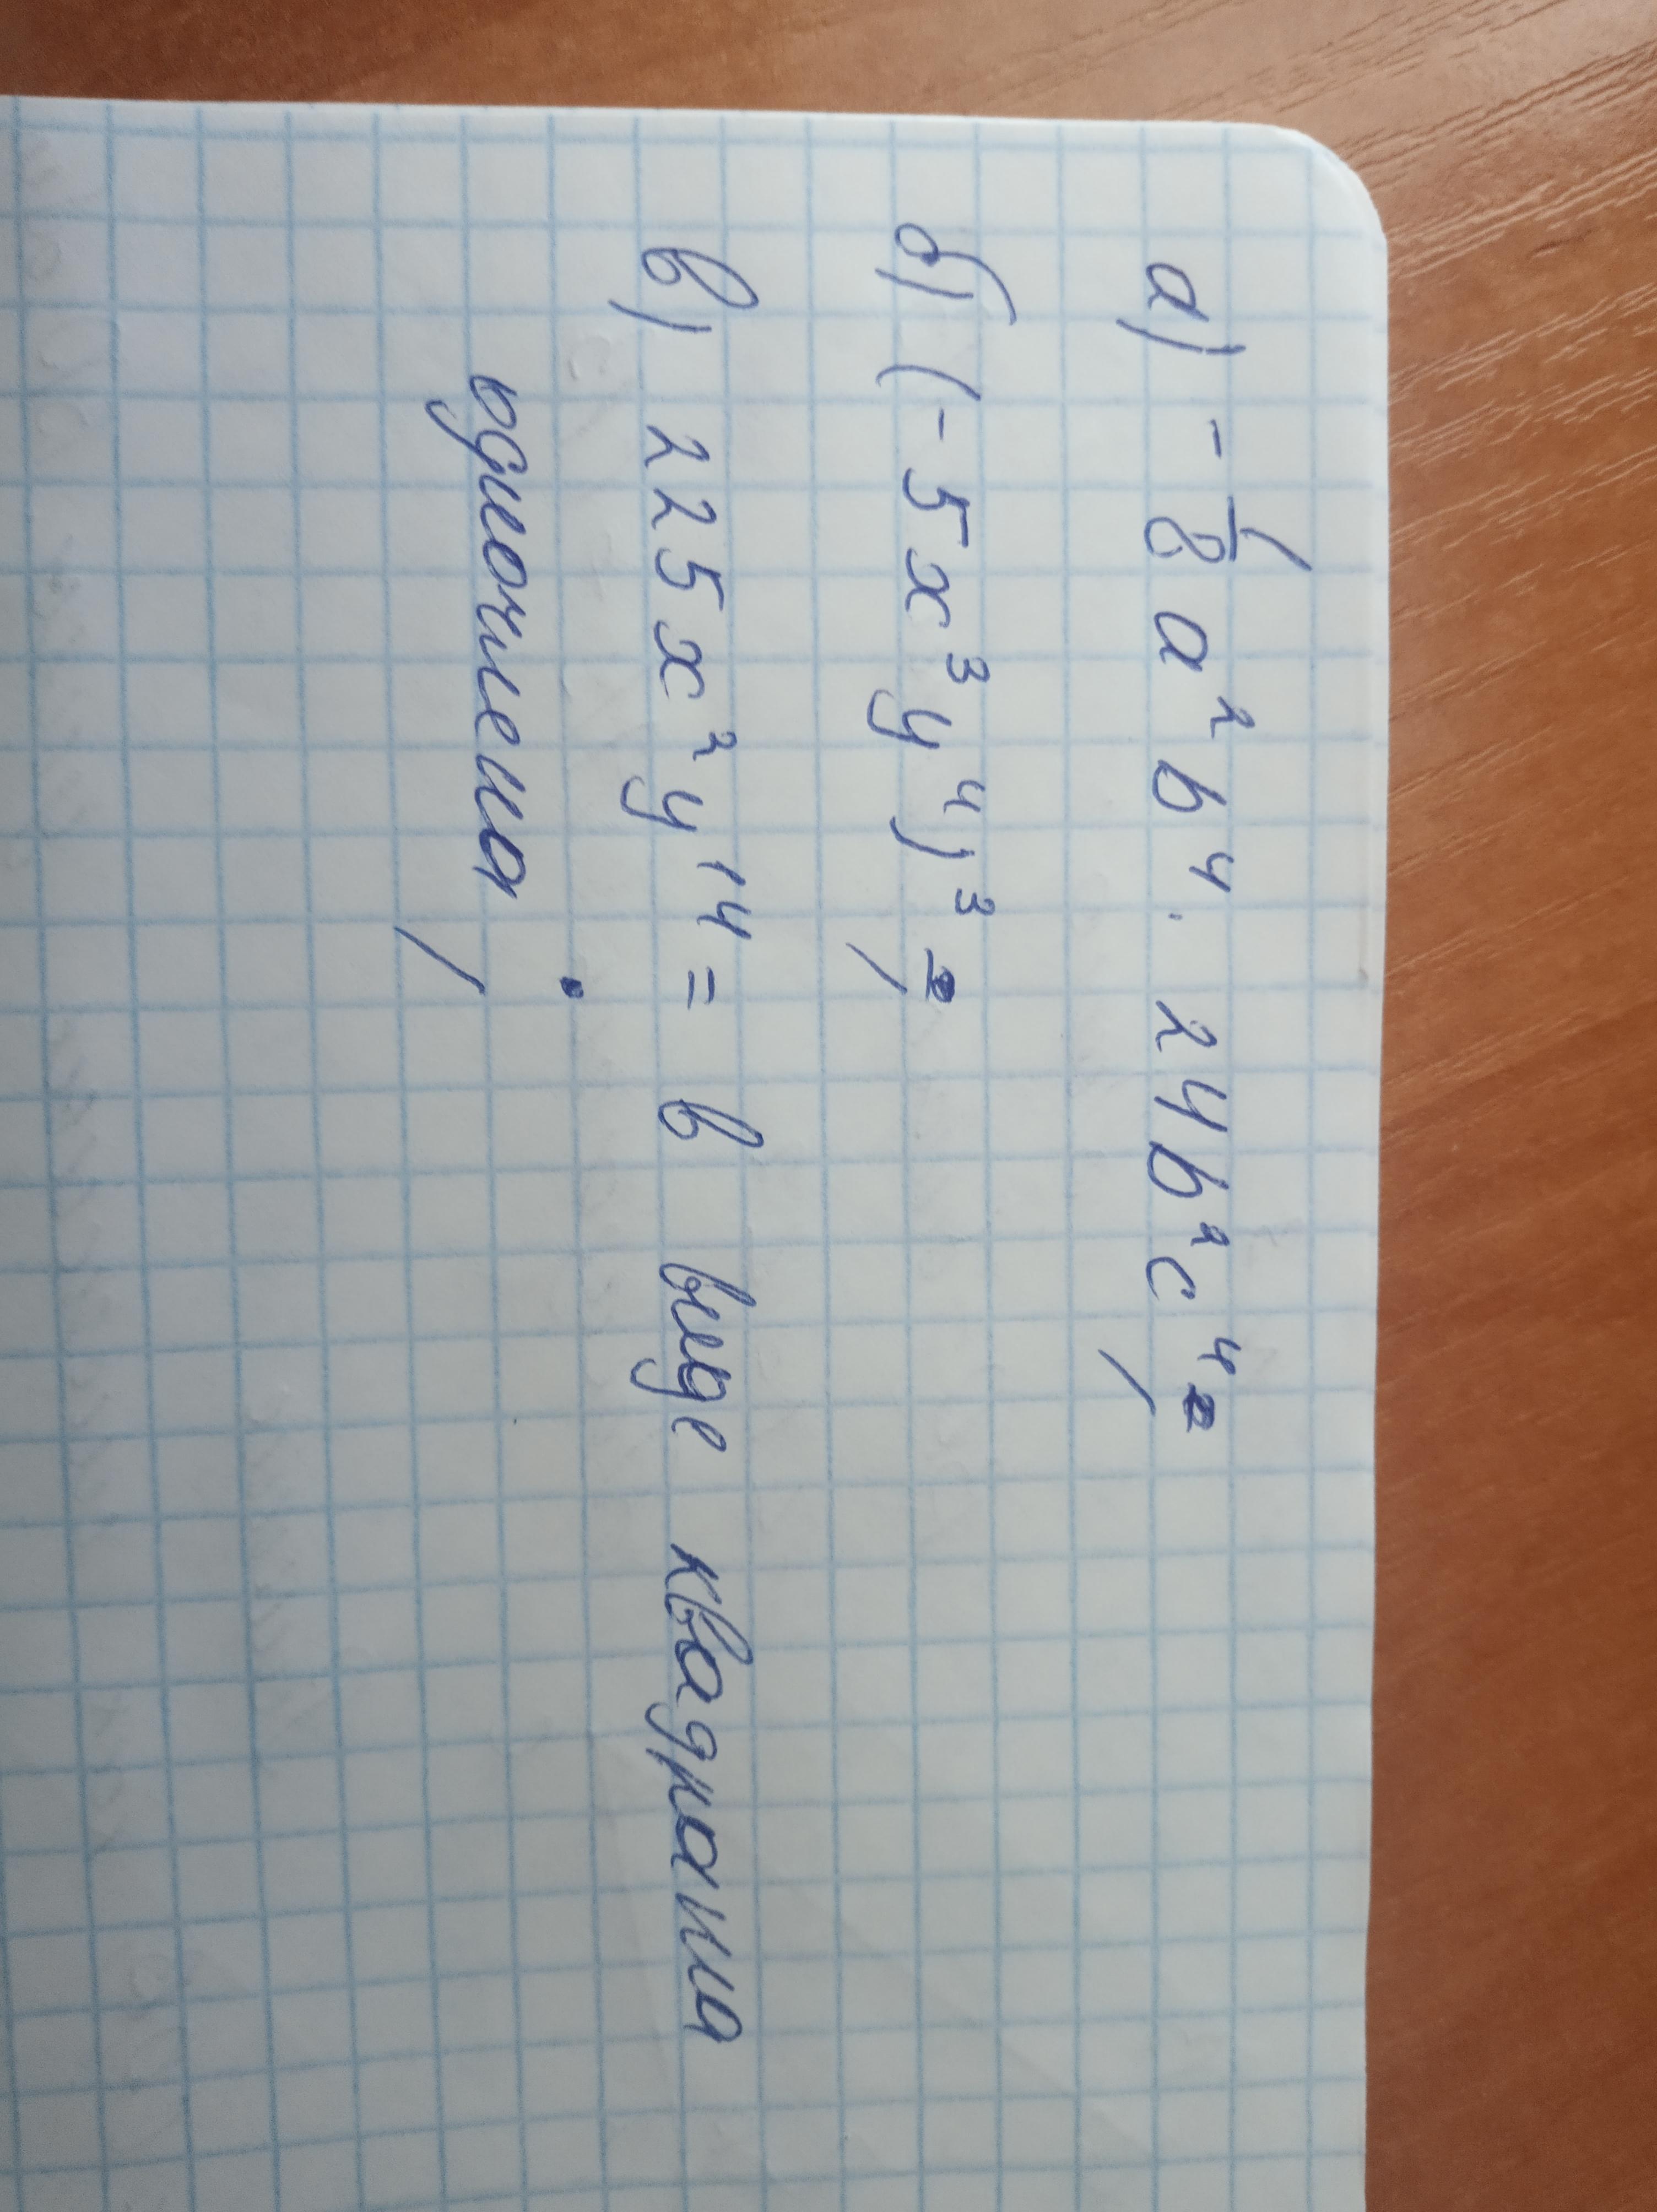 а) -1/8 a²b⁴ · 24b²c⁴ =
б) (-5x³y⁴)³ =
в) 225x²y¹⁴ = в виде квадрата
одночлена